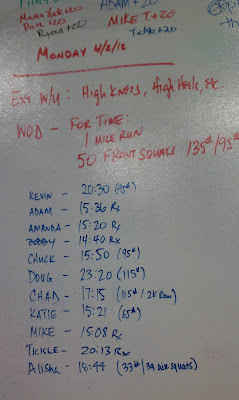 ADAM +20
Mama Jack +20
Dan +20
MIKE T +20
Ryan +20
Tickle +20
MONDAY 4/2/12
Ext W/u : High Knees, High Heels, Etc.
WOD - FOR TIME:
1 MILE RUN
50 FRONT SQUATS 135#/95#
KEVIN - 20:30 (95#)
ADAM - 15:36 Rx
AMANDA - 15:20 Rx
BOBBY - 14:40 Rx
CHUCK - 15:50 (95#)
DOUG - 23:20 (115#)
CHAD - 17:15 (115#/2K Row)
KATIE - 15:21 (65#)
MIKE - 15:08 Rx
TICKLE - 20:13 Rx
Alisha - 18:44 (33#/39 air squats)